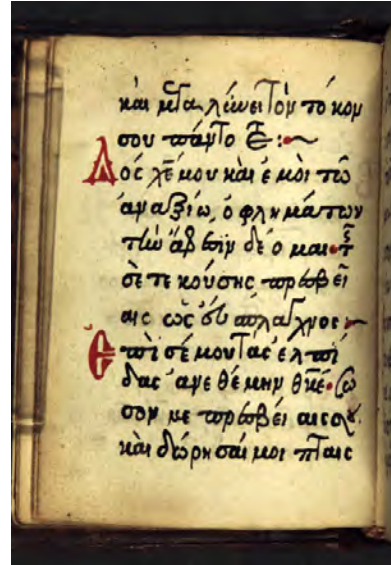 καὶ μγα λώνει τὸν τό κον
σου πάντο τε :~
Δός χέ μου καὶ ἐ μοὶ τῶ
ἀναξίω, ὀ φλη μά των
τὼ ἄφ σιν δέ ο μαι• τς
σὲ τε κούσης πρέσβεί
αις ὡς εὔσπλαγχνος :~
Ἐπὶ σέ μου τὰς ἐλ πί
δας ἀνε θέμην θκέ• Σω
σον με πρέσβεί αις σου
καὶ δώρη σαί μοι πταις